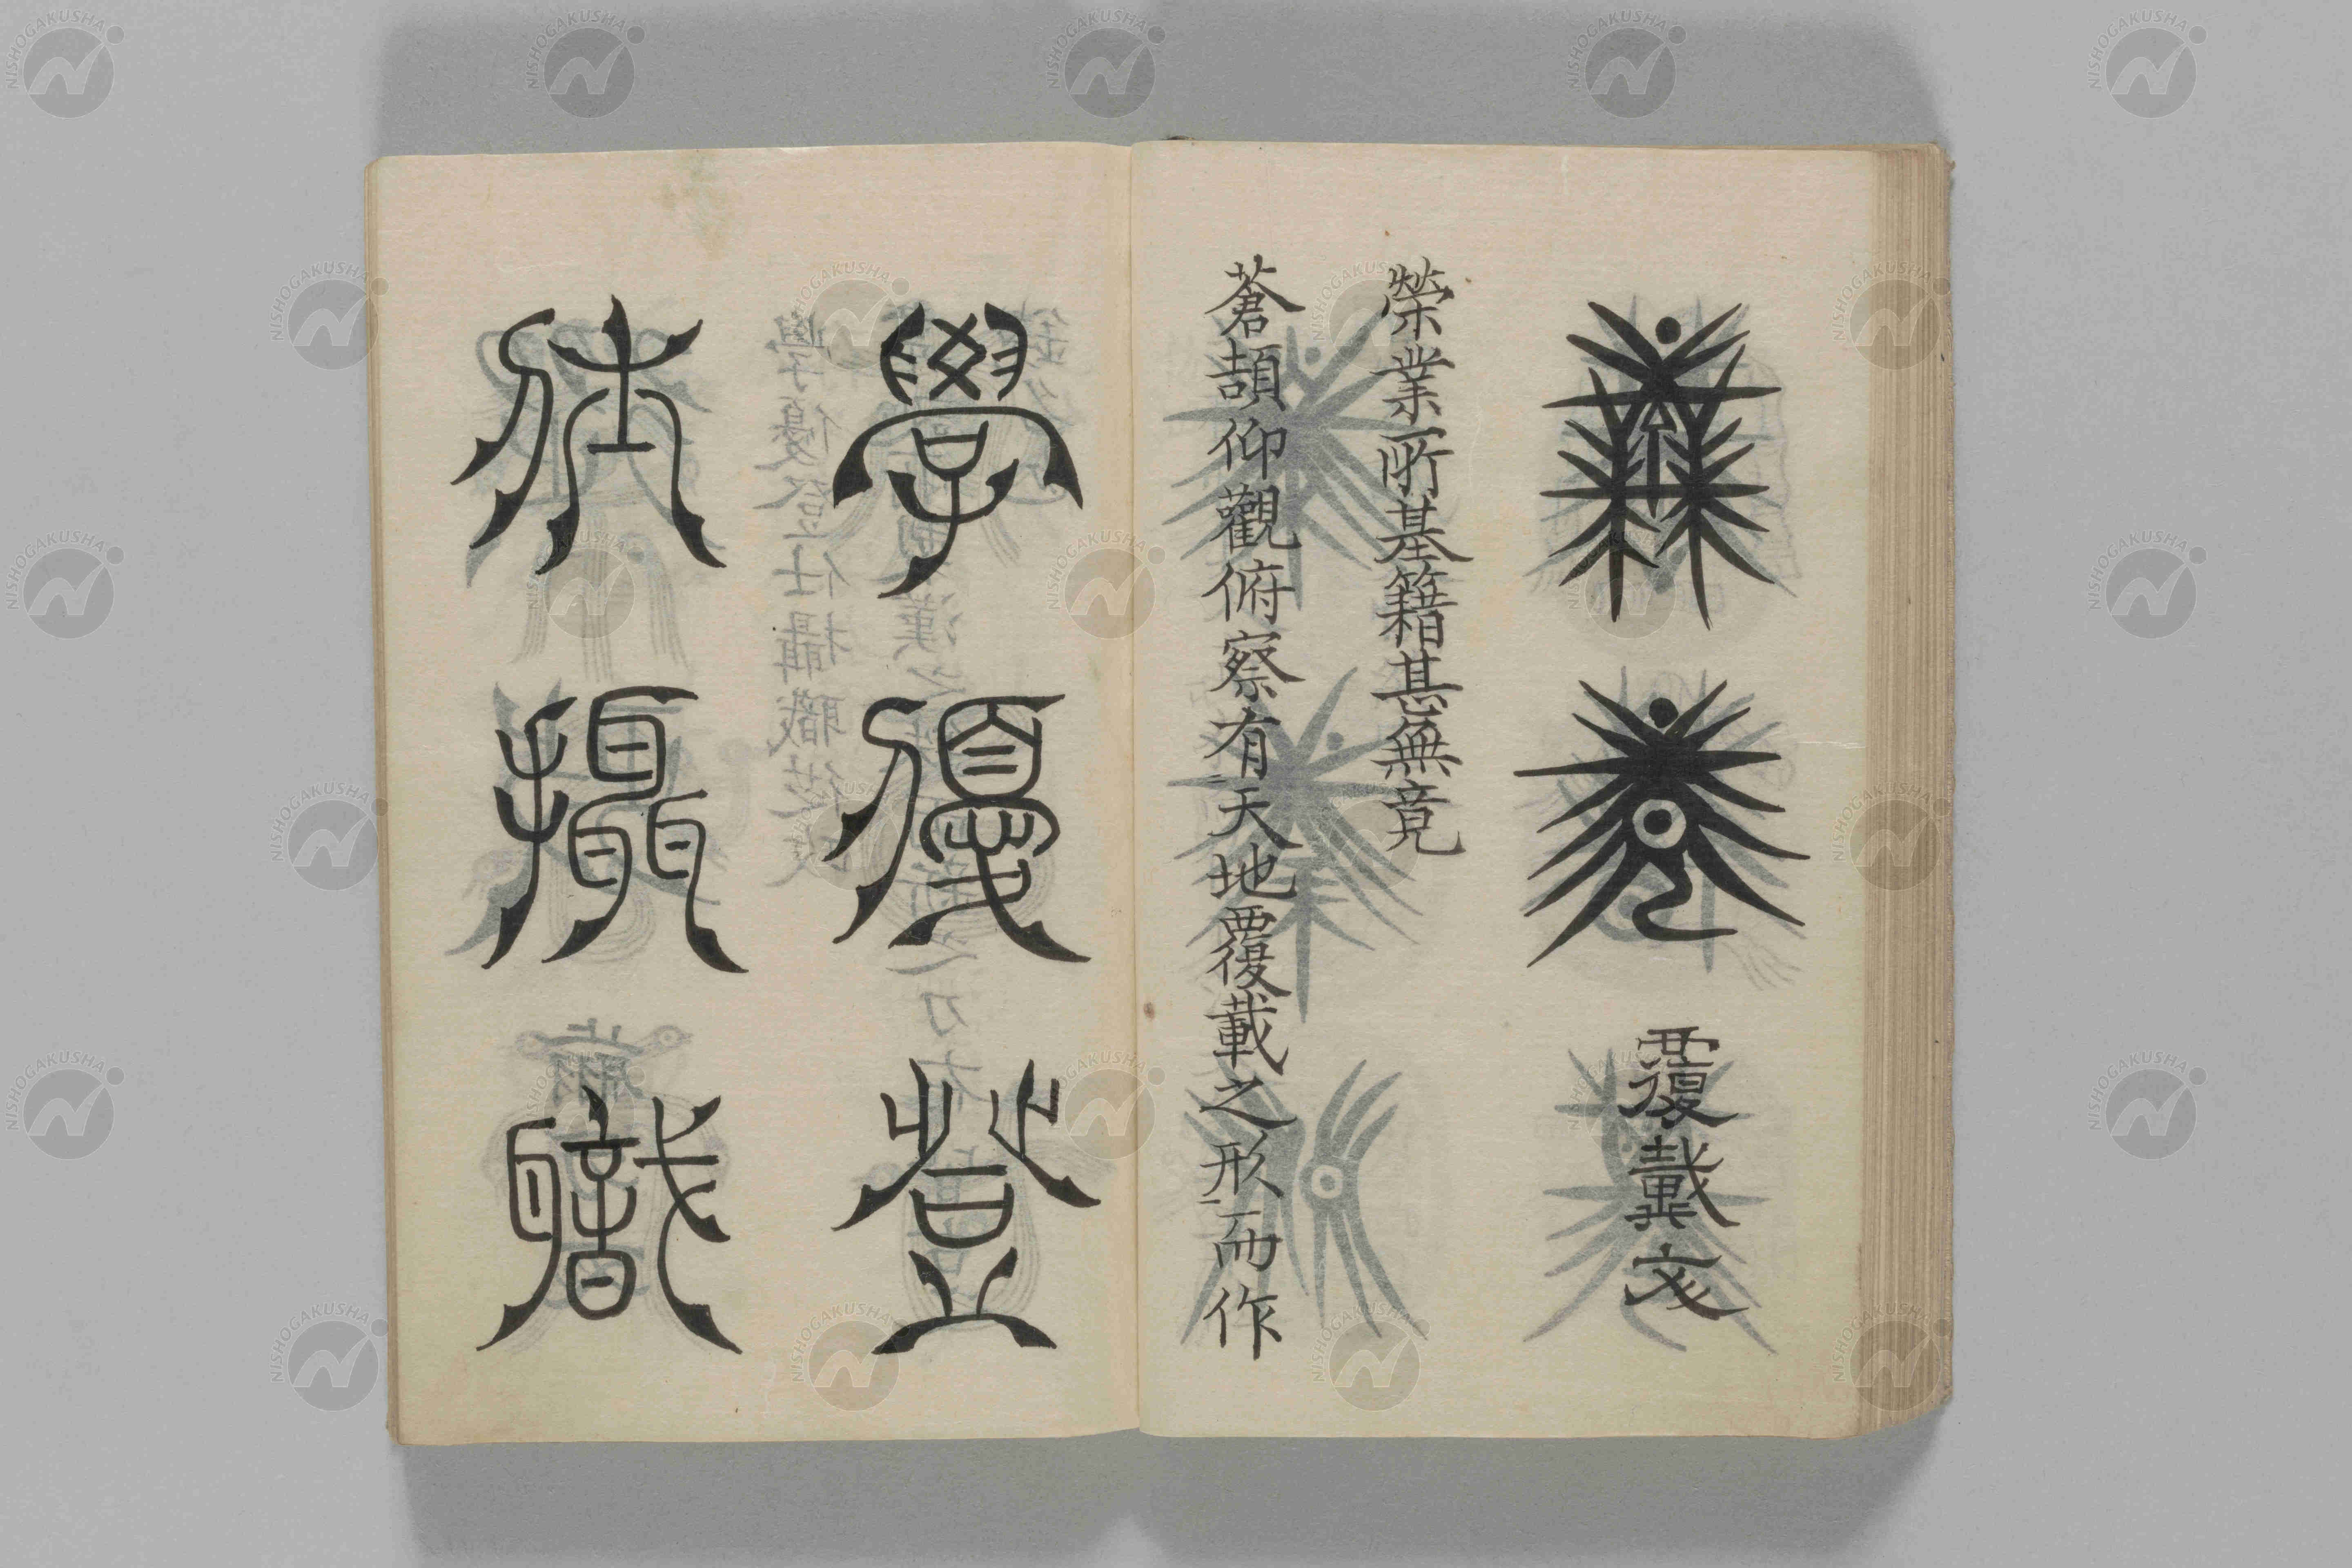 無竟
覆載文
榮業所基籍甚無竟
蒼頡仰觀俯察有天地覆載之形而作
學優登
仕攝職
NISHOGAKUSHA